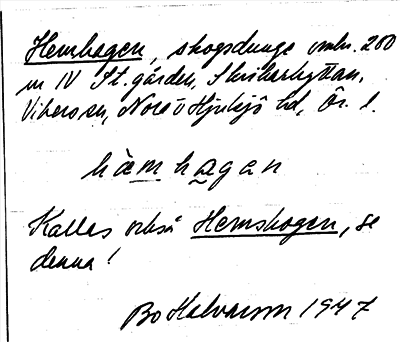 Hemhagen, skogsdunge omkr. 200
m NV St. gården, Skrikarhyttan,
Vikers sn, Nora o Hjulsjö hd, Ör. l.
hàmhagan
Kallas också Hemskogen, se
denna!
Bo Halvarson 1947